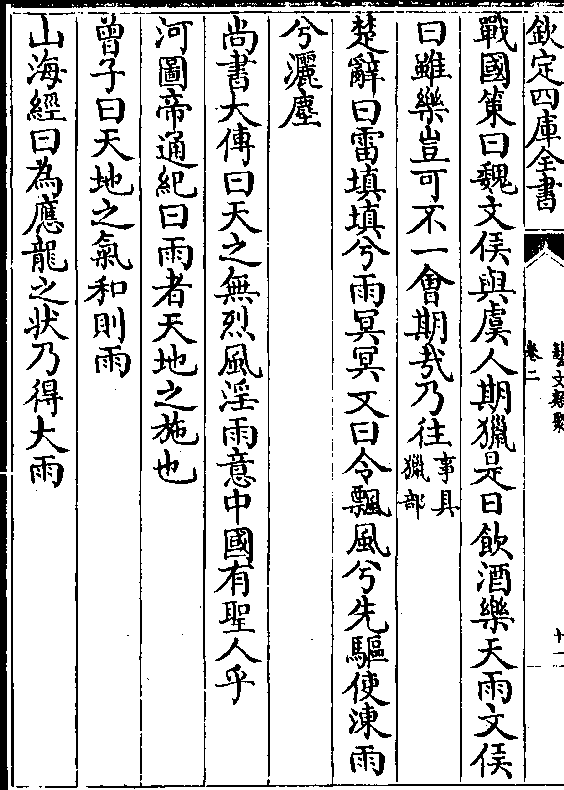 欽定四庫全書
藝文類聚
卷二
十一
戰國策曰魏文侯與虞人期獵是日飲酒樂天雨文侯
曰雖樂豈可不一會期哉乃往事具獵部
楚辭曰雷填填兮雨冥冥又曰令飄風兮先驅使涷雨
兮灑塵
尚書大傳曰天之無烈風淫雨意中國有聖人乎
河圖帝通紀曰雨者天地之施也
曾子曰天地之氣和則雨
山海經曰為應龍之状乃得大雨